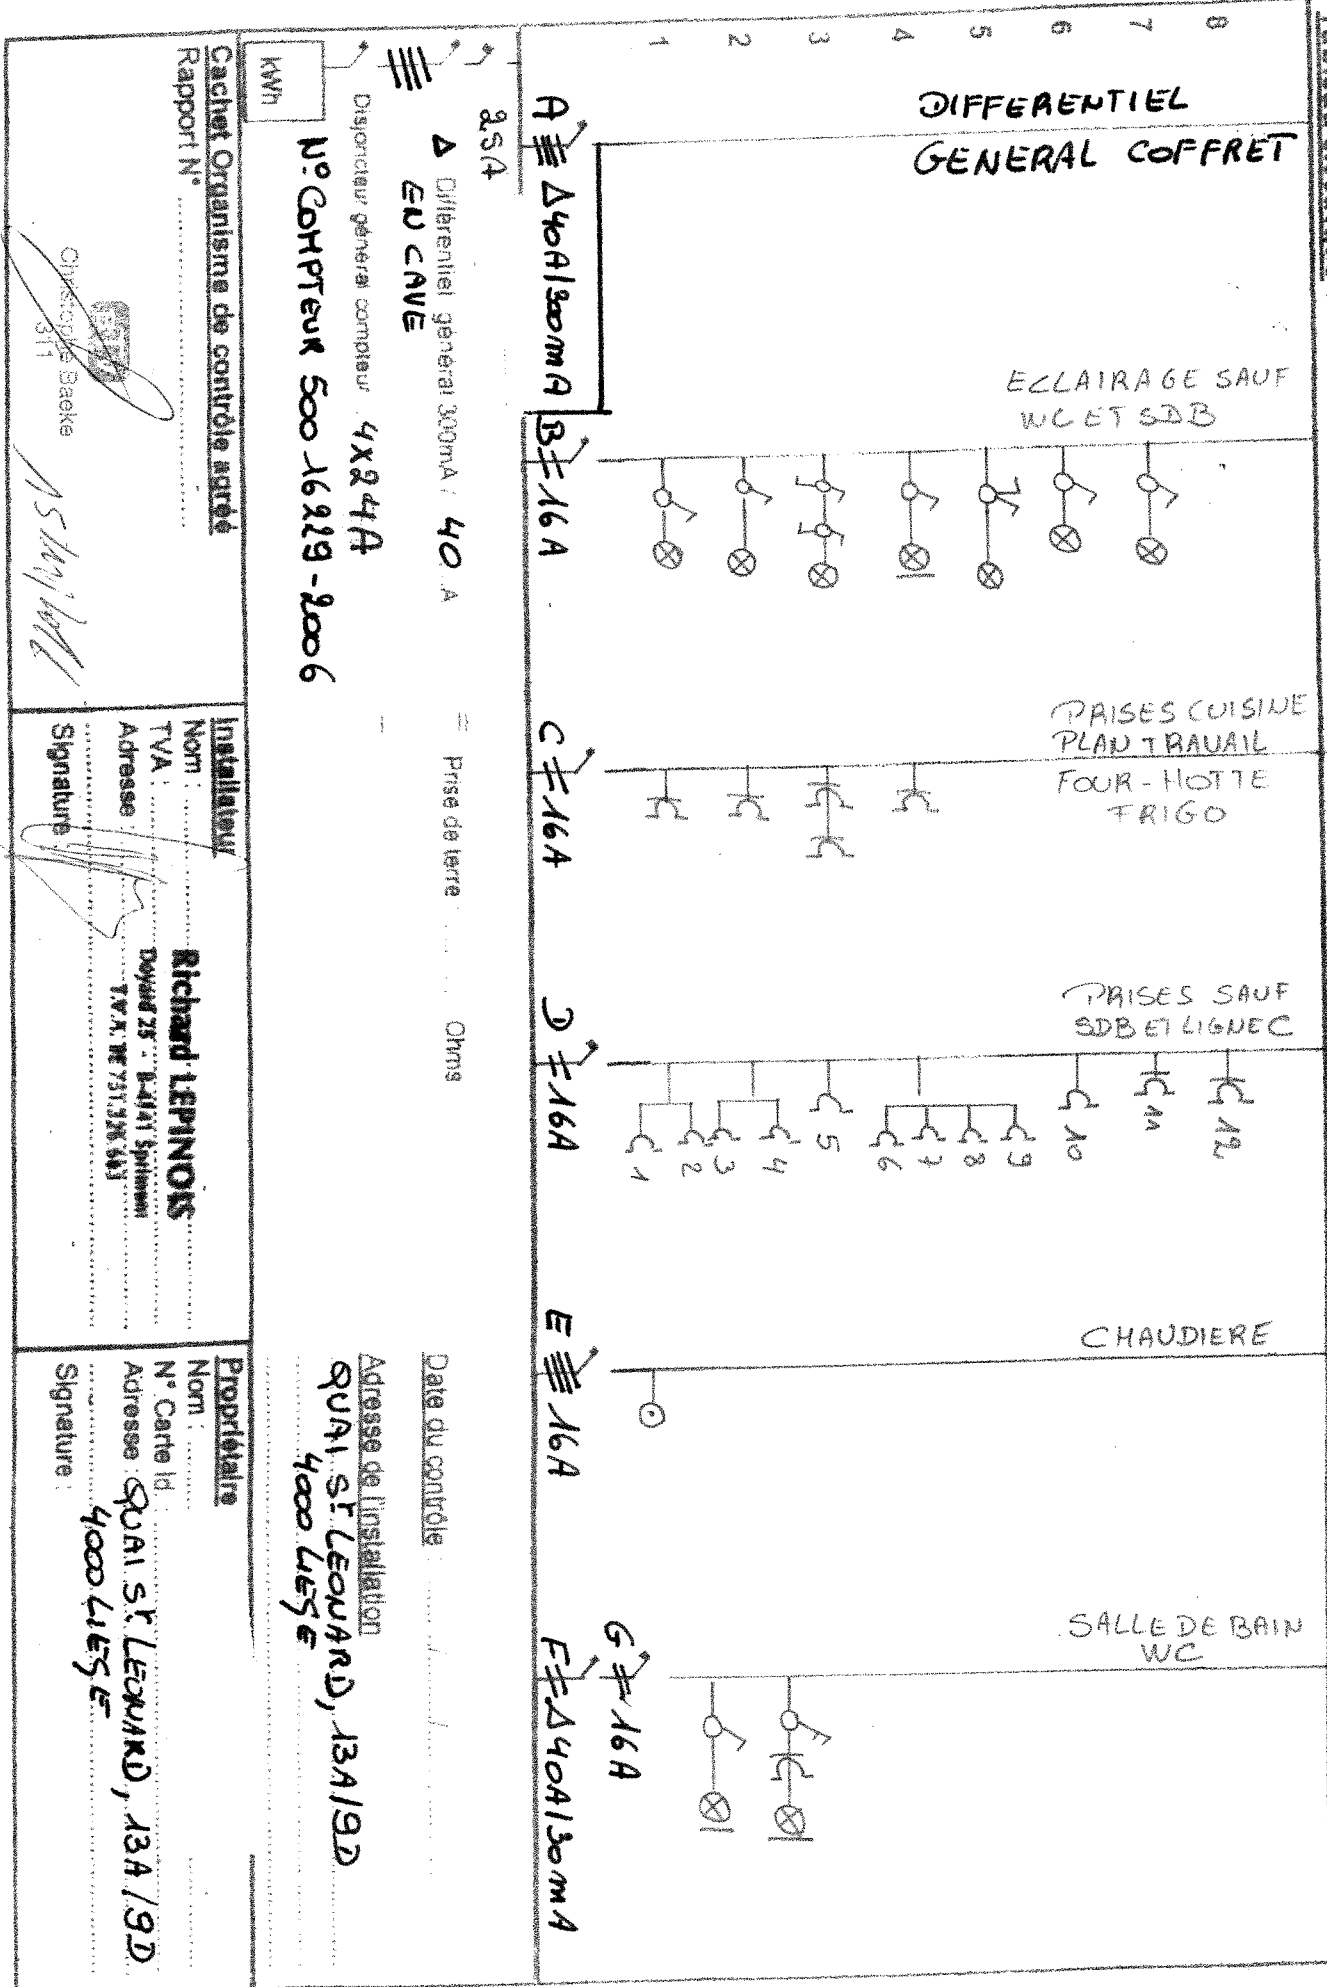 8
7
6
5
4
3
2
1
DIFFERENTIEL
GENERAL COFFRET
ECLAIRAGE SAUF
WC ET SDB
PRISES CUISINE
PLAN TRAVAIL
FOUR-HOTTE
FRIGO
PRISES SAUF
SDB ET LIGNE C
1
2
3
4
5
6
7
8
9
10
11
12
CHAUDIERE
SALLE DE BAIN
WC
A Δ40A/300mA
B 16A
C 16A
D 16A
E 16A
G 16A
F Δ40A/30mA
25A
Δ Différentiel général 300mA : 40 A
EN CAVE
Disjoncteur général compteur 4x24A
kWh
N° COMPTEUR 500 16229-2006
Prise de terre : Ohms
Date du contrôle : / /
Adresse de l'installation
QUAI ST LEONARD, 13A/9D
4000 LIEGE
Cachet Organisme de contrôle agréé
Rapport N°
Christophe Baeke
311
Installateur
Nom :
TVA :
Adresse :
Signature :
Richard LEPINOIS
Propriétaire
Nom :
N° Carte Id
Adresse : QUAI ST. LEONARD, 13A/9D
4000 LIEGE
Signature :